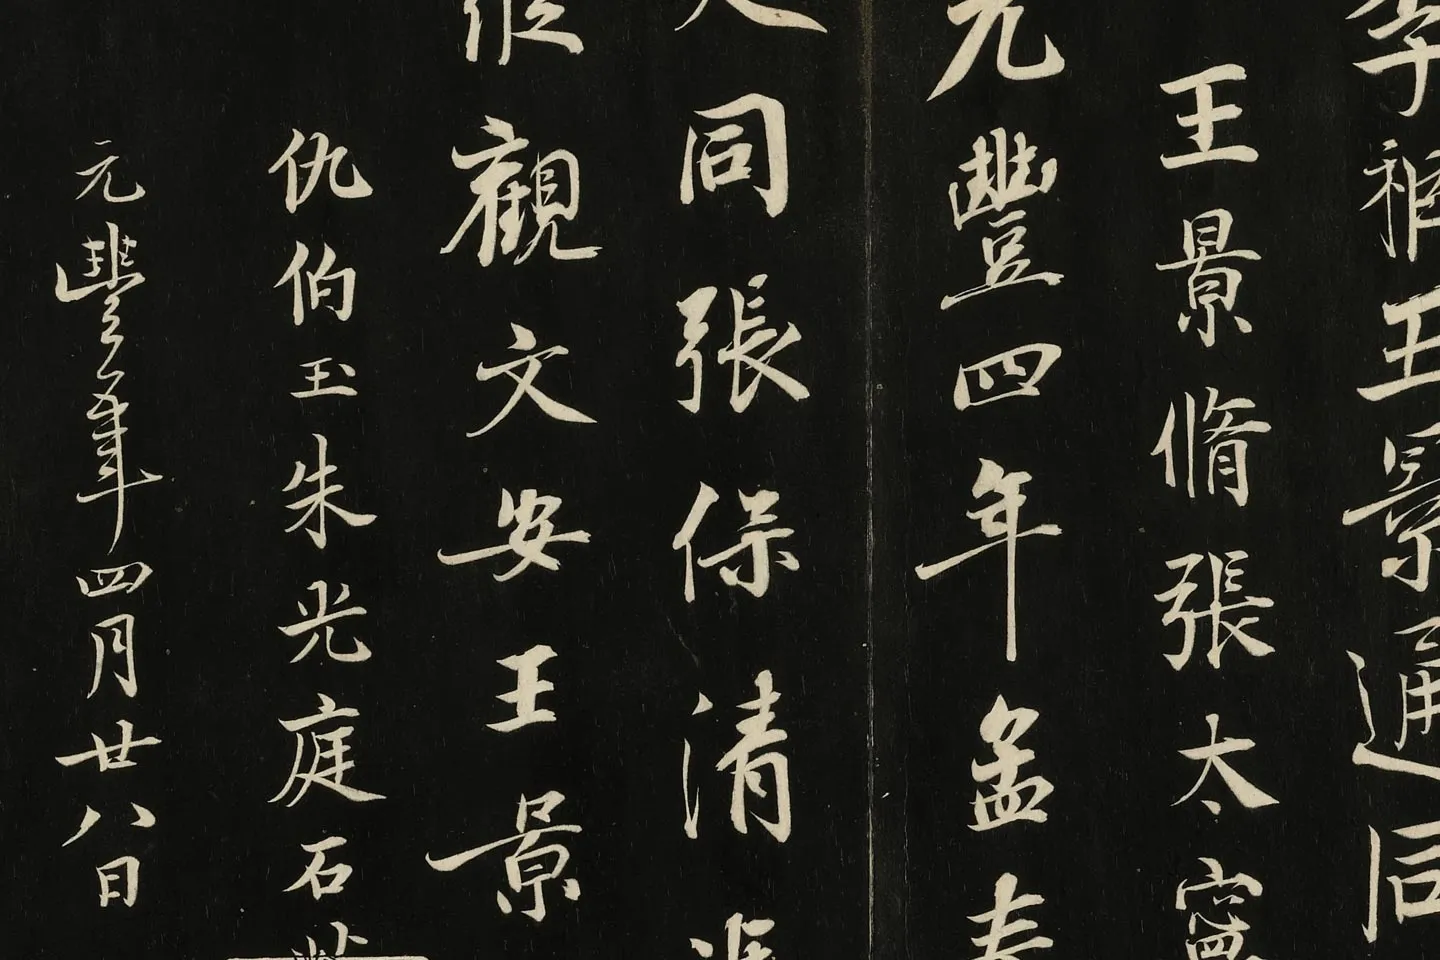 李 王景通同
王景脩張太寧
元豐四年孟春
同張保清
觀文安王景
仇伯玉朱光庭石
元豐年四月廿八日